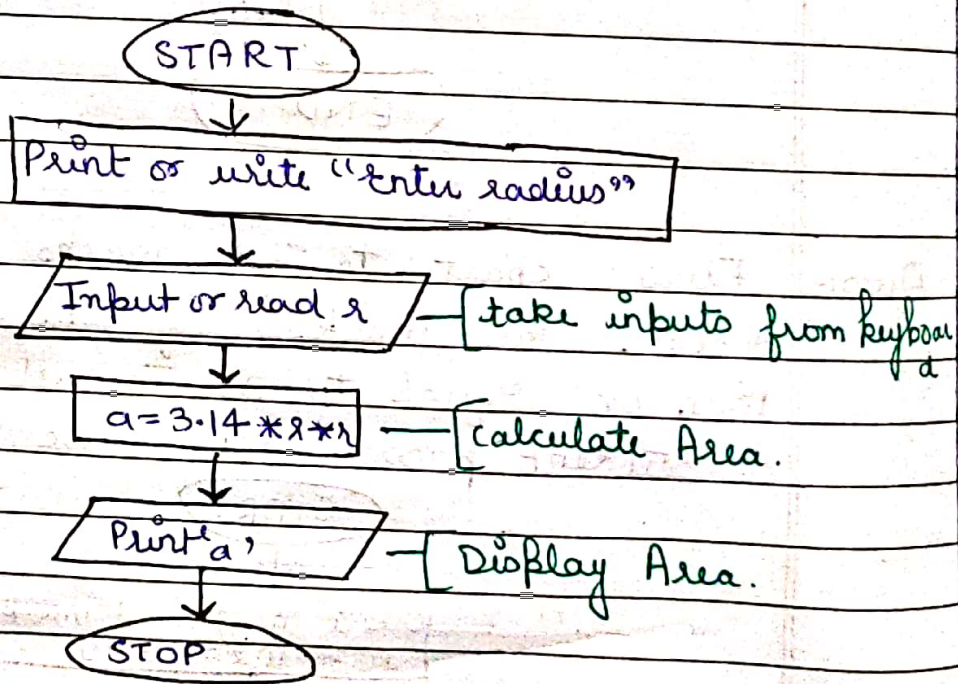 START
Print or write "Enter radius"
Input or read r
take inputs from keyboard
a = 3.14 * r * r
Calculate Area.
Print 'a'
Display Area.
STOP